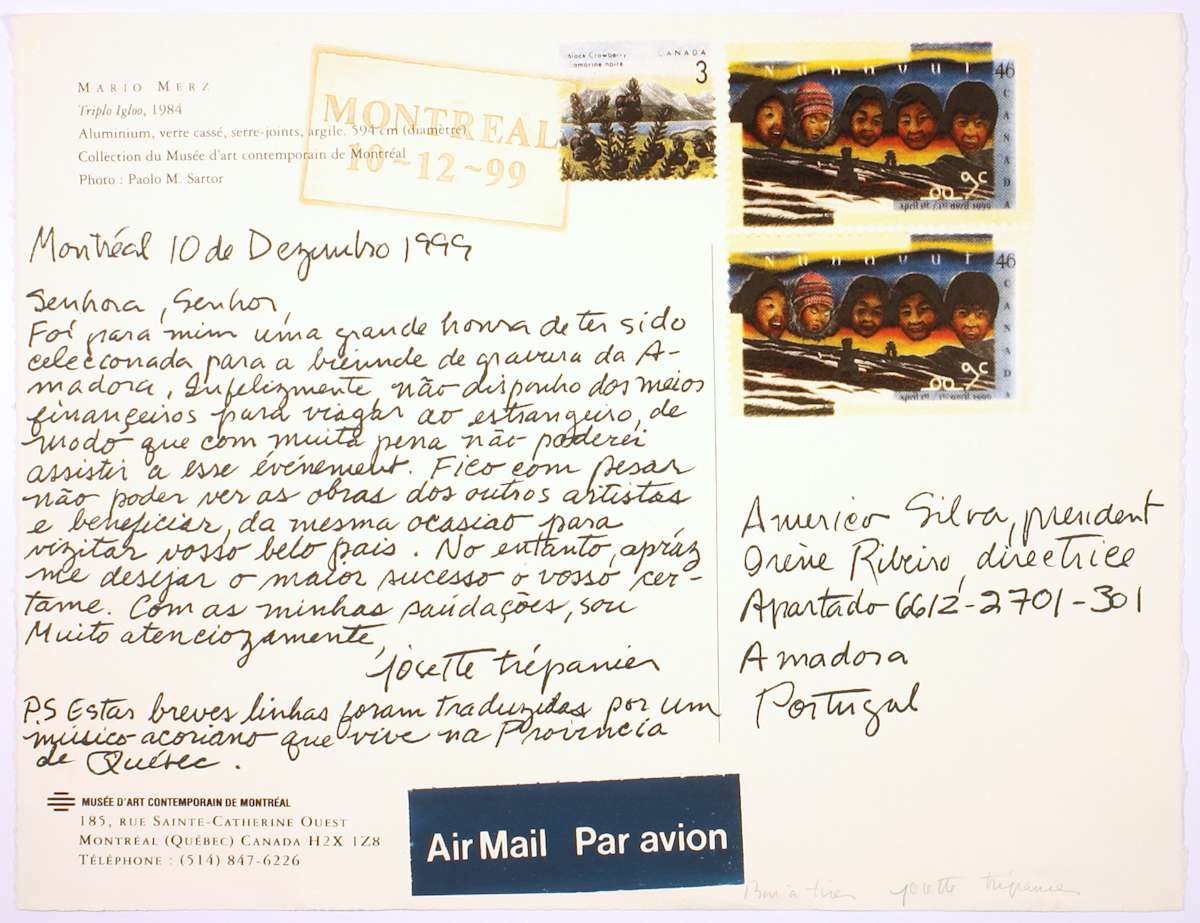 MARIO MERZ
Triplo Igloo, 1984
Aluminium, verre cassé, serre-joints, argile. 594 cm (diamètre)
Collection du Musée d'art contemporain de Montréal
Photo : Paolo M. Sartor
MONTREAL
10~12~99
Black Crowberry
Camarine noire
CANADA
3
Nunavut
46
CANADA
April 1st / 1er avril 1999
Nunavut
46
CANADA
April 1st / 1er avril 1999
Montréal 10 de Dezembro 1999
Senhora, Senhor,
Foi para mim uma grande honra de ter sido
celeccionada para a bieunde de gravura da A-
madora, Infelizmente, não disponho dos meios
finançeiros para viagar ao estrangeiro, de
modo que com muita pena não poderei
assistir a esse événement. Fico com pesar
não poder ver as obras dos outros artistas
e beneficiar, da mesma ocasiao para
vizitar vosso belo pais. No entanto, apráz
me desejar o maior sucesso o vosso cer-
tame. Com as minhas saúdações, sou
Muito atenciozamente,
josette trépanier
P.S Estas breves linhas foram traduzidas por um
músico açoriano que vive na Provincia
de Québec.
Americo Silva, président
Irène Ribeiro, directrice
Apartado 6612-2701-301
Amadora
Portugal
MUSÉE D'ART CONTEMPORAIN DE MONTRÉAL
185, RUE SAINTE-CATHERINE OUEST
MONTRÉAL (QUÉBEC) CANADA H2X 1Z8
TÉLÉPHONE : (514) 847-6226
Air Mail Par avion
Bon à tirer josette trépanier